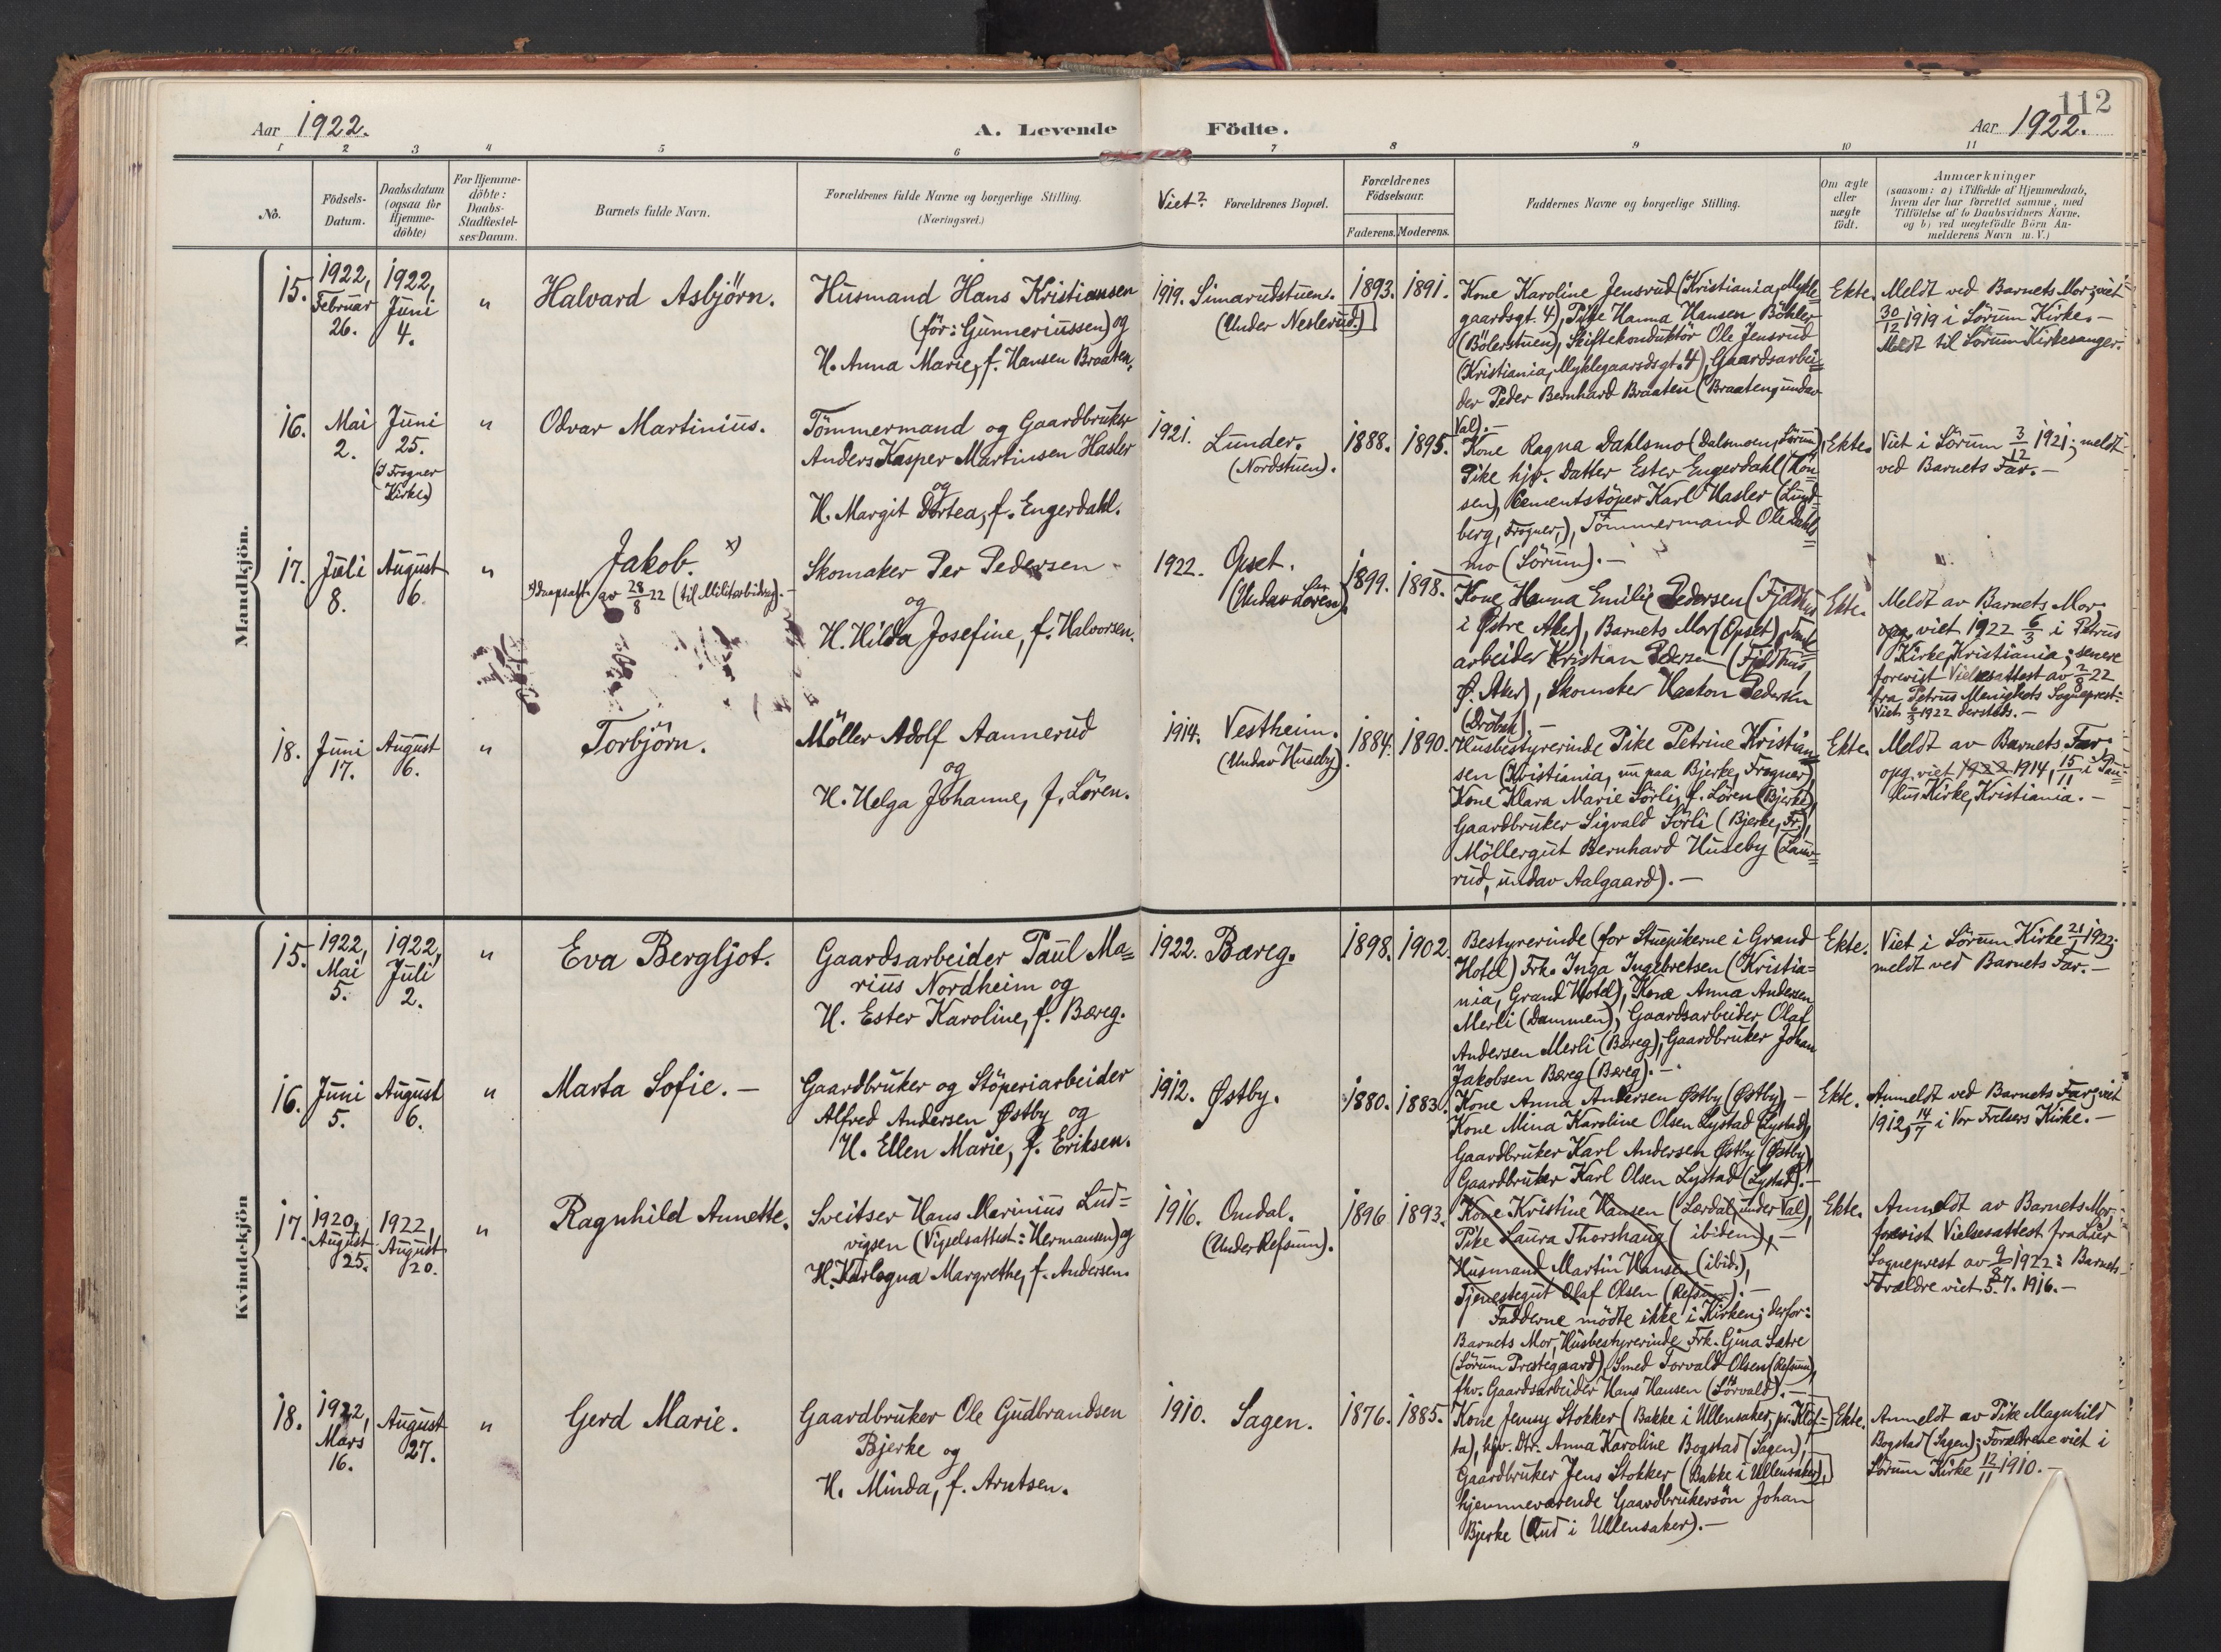 112
Aar 1922.
A. Levende Födte.
Aar 1922.
1 2 3 4 5 6 7 8 9 10 11
No.
Födsels-
Datum.
Daabsdatum
(ogsaa for
Hjemme-
döbte)
For Hjemme-
döbte:
Daabs-
Stadfestel-
ses-Datum.
Barnets fulde Navn.
Forældrenes fulde Navne og borgerlige Stilling.
(Næringsvei.)
Viet? Forældrenes Bopæl.
Forældrenes
Födselsaar.
Faderens. Moderens.
Faddernes Navne og borgerlige Stilling.
Om ægte
eller
uægte
födt.
Anmærkninger
(saasom: a) i Tilfælde af Hjemmedaab,
hvem der har forrettet samme, med
Tilföielse af to Daabsvidners Navne,
og b) ved uægtefödte Börn An-
melderens Navn m. V.)
Mandkjön.
15.
1922,
Februar
26.
1922,
Juni
4.
"
Halvard Asbjörn.
Husmand Hans Kristiansen
(för: Gunneriussen) og
H. Anna Marie, f. Hansen Braaten.
1919. Simarudstuen.
(Under Neslerud.)
1893. 1891.
Kone Karoline Jensrud (Kristiania, Mykle=
gaardsgt. 4), Pike Hanna Hansen Böhler
(Bölerstuen), Skiftekonduktör Ole Jensrud
(Kristiania, Myklegaardsgt. 4), Gaardsarbei=
der Peder Bernhard Braaten (Braaten, undav
Val).-
Ekte.
Meldt ved Barnets Mor; viet
30/12 1919 i Sörum Kirke.-
Meldt til Sörum Kirkesanger.
16.
Mai
2.
Juni
25.
(I Frogner
Kirke)
"
Odvar Martinius.
Tömmermand og Gaardbruker
Anders Kasper Martinsen Hasler
og
H. Margit Dortea, f. Engerdahl.
1921. Lunder.
(Nordstuen).
1888. 1895.
Kone Ragna Dahlsmo (Dalsmoen, Sörum)
Pike hjv. Datter Ester Engerdahl (Hön
sen), Cementstöper Karl Hasler (Lund=
berg, Frogner,), Tömmermand Ole Dahls
mo (Sörum).-
Ekte.
Viet i Sörum 3/12 1921; meldt
ved Barnets Far.-
17.
Juli
8.
August
6.
"
Jakob. x)
av 28/8 22 (til Militærbidrag).-
Skomaker Per Pedersen
og
H. Hilda Josefine, f. Halvorsen.
1922. Opset.
(Undav Lören)
1899. 1898.
Kone Hanna Emilie Pedersen (Fjeldhus
i Østre Aker), Barnets Mor (Opset),
arbeider Kristian Pedersen (Fjeldhus,
Ø. Aker), Skomaker Haakon Pedersen
(Dröbak).-
Ekte.
Meldt av Barnets Mor;
opg. viet 1922 6/3 i Petrus
Kirke, Kristiania; senere
forevist Vielsesattest av 2/8 22
fra Petrus Menighets Sogneprest:
Viet 6/3 1922 dersteds.-
18.
Juni
17.
August
6.
"
Torbjörn.
Möller Adolf Aannerud
og
H. Helga Johanne, f. Lören.
1914. Vestheim.
(Undav Huseby)
1884. 1890.
Husbestyrerinde Pike Petrine Kristian=
sen (Kristiania, nu paa Bjerke, Frogner),
Kone Klara Marie Sörli, f. Lören (Bjerke),
Gaardbruker Sigvald Sörli (Bjerke, Fr.),
Möllergut Bernhard Huseby (Lauv=
rud, undav Aalgaard).-
Ekte.
Meldt av Barnets Far;
opg. viet 1914, 15/11 i Pau=
lus Kirke, Kristiania.-
Kvindekjön
15.
1922,
Mai
5.
1922,
Juli
2.
"
Eva Bergljot.
Gaardsarbeider Paul Ma=
rius Nordheim og
H. Ester Karoline, f. Bæreg.
1922. Bæreg.
1898. 1902.
Bestyrerinde (for Stuepikerne i Grand
Hotel) Frk. Inga Ingebretsen (Kristia=
nia, Grand Hotel), Kone Anna Andersen
Merli (Dammen), Gaardsarbeider Olaf
Andersen Merli (Bæreg), Gaardbruker Johan
Jakobsen Bæreg (Bæreg).-
Ekte.
Viet i Sörum Kirke 21/1 1922;
meldt ved Barnets Far.-
16.
Juni
5.
August
6.
"
Marta Sofie.-
Gaardbruker og Stöperiarbeider
Alfred Andersen Østby og
H. Ellen Marie, f. Eriksen.
1912. Østby.
1880. 1883.
Kone Anna Andersen Østby (Østby),-
Kone Mina Karoline Olsen Lystad (Lystad),
Gaardbruker Karl Andersen Østby (Østby),
Gaardbruker Karl Olsen Lystad (Lystad).-
Ekte.
Anmeldt ved Barnets Far; viet
1912, 14/7 i Vor Frelsers Kirke.-
17.
1920,
August
25.
1922,
August
20.
"
Ragnhild Annette.
Sveitser Hans Marinius Lud=
vigsen (Vigselsattest: Hermansen) og
H. Karlogna Margrethe, f. Andersen.
1916. Omdal.
(Under Refsum).
1896 1893.
Kone Kristine Hansen (Lærdal under Val),
Pike Laura Thorshaug (ibidem),-
Husmand Martin Hansen (ibid.),
Tjenestegut Olaf Olsen (Refsum).-
Fadderne mödte ikke i Kirken; derfor:
Barnets Mor, Husbestyrerinde Frk. Gina Sætre
(Sörum Prestegaard), Smed Torvald Olsen (Refsum),
fhv. Gaardsarbeider Hans Hansen (Sörvald).-
Ekte.
Anmeldt av Barnets Mor;
forevist Vielsesattest fra Lier
Sogneprest av 9/8 1922: Barnets
Forældre viet 5.7.1916.-
18.
1922,
Mars
16.
August
27.
"
Gerd Marie.
Gaardbruker Ole Gudbrandsen
Bjerke og
H. Minda, f. Arntsen.
1910. Sagen.
1876. 1885.
Kone Jenny Stokker (Bakke i Ullensaker, pr. Kløf=
ta), hjv. Dtr. Anna Karoline Bogstad (Sagen),-
Gaardbruker Jens Stokker (Bakke i Ullensaker),
hjemmeværende Gaardbrukersön Johan
Bjerke (Aud i Ullensaker).-
Ekte.
Anmeldt av Pike Magnhild
Bogstad (Sagen); Forældrene viet i
Sörum Kirke 12/11 1910.-